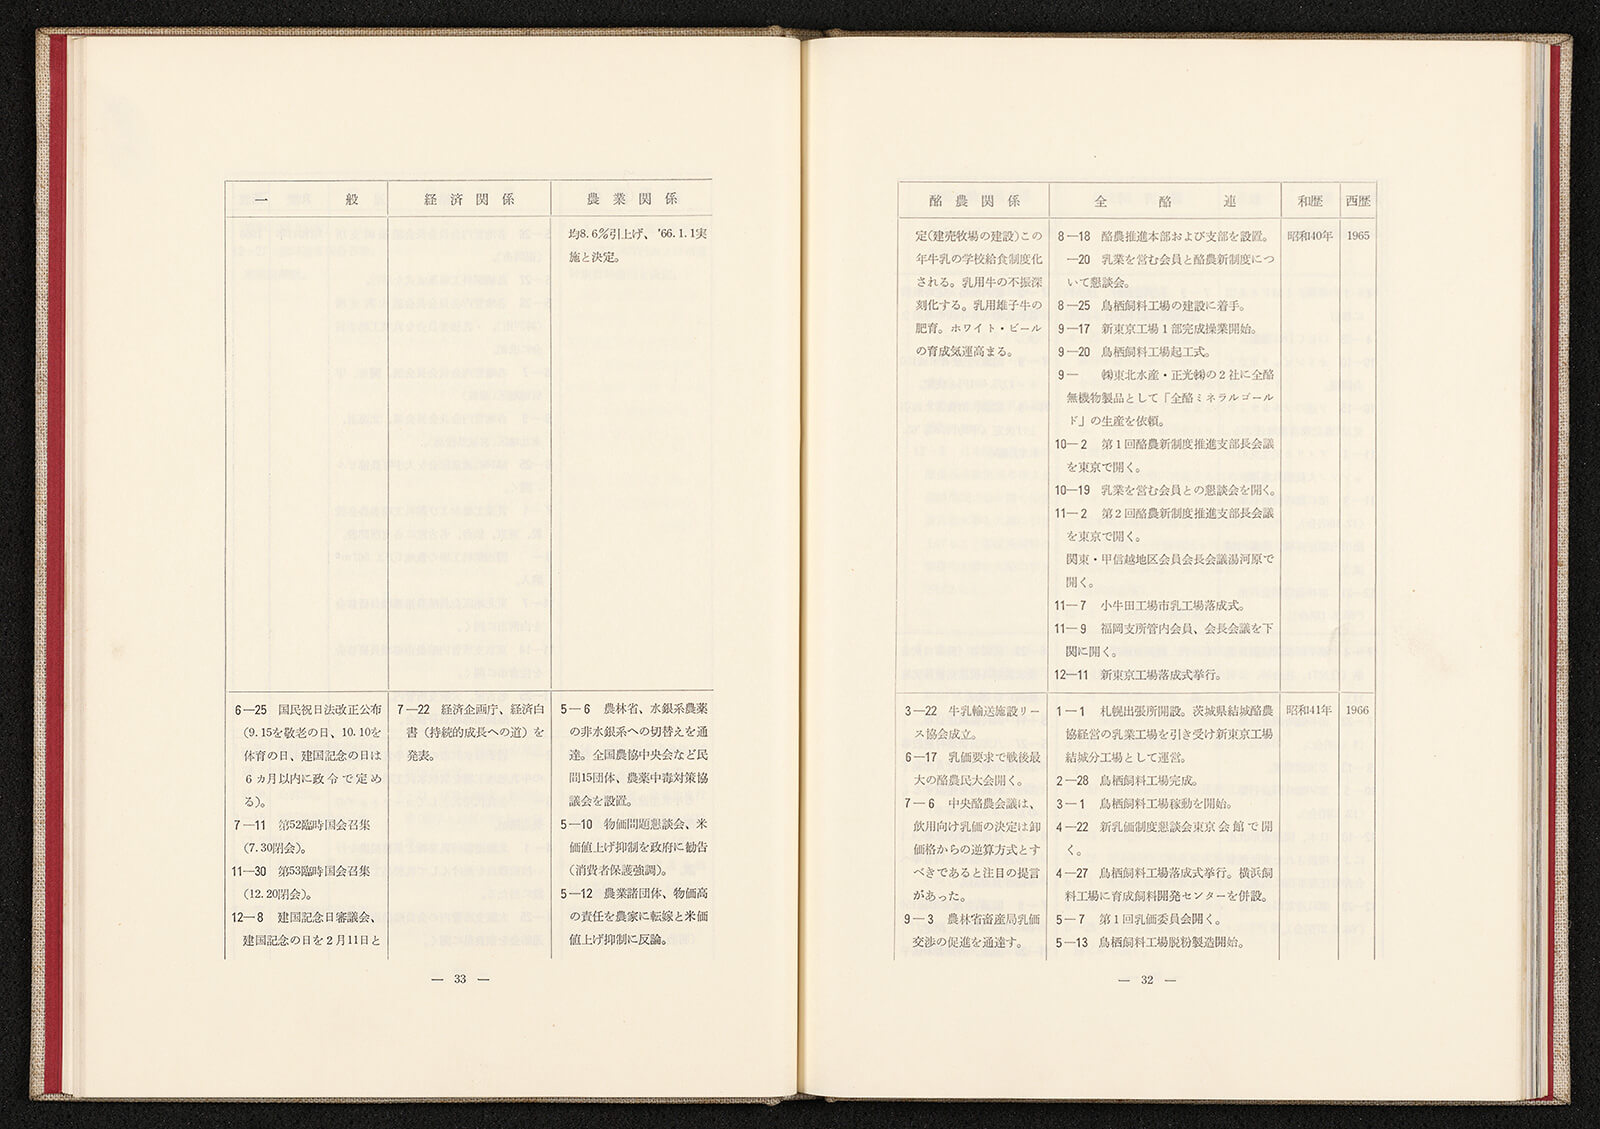 西歴
和歴
全酪連
酪農関係
1965
昭和40年
8―18　酪農推進本部および支部を設置。
―20　乳業を営む会員と酪農新制度につ
いて懇談会。
8―25　鳥栖飼料工場の建設に着手。
9―17　新東京工場1部完成操業開始。
9―20　鳥栖飼料工場起工式。
9―　㈱東北水産・正光㈱の2社に全酪
無機物製品として「全酪ミネラルゴール
ド」の生産を依頼。
10―2　第1回酪農新制度推進支部長会議
を東京で開く。
10―19　乳業を営む会員との懇談会を開く。
11―2　第2回酪農新制度推進支部長会議
を東京で開く。
関東・甲信越地区会員会長会議湯河原で
開く。
11―7　小牛田工場市乳工場落成式。
11―9　福岡支所管内会員、会長会議を下
関に開く。
12―11　新東京工場落成式挙行。
定(建売牧場の建設)この
年牛乳の学校給食制度化
される。乳用牛の不振深
刻化する。乳用雄子牛の
肥育。ホワイト・ビール
の育成気運高まる。
1966
昭和41年
1―1　札幌出張所開設。茨城県結城酪農
協経営の乳業工場を引き受け新東京工場
結城分工場として運営。
2―28　鳥栖飼料工場完成。
3―1　鳥栖飼料工場稼動を開始。
4―22　新乳価制度懇談会東京会館で開
く。
4―27　鳥栖飼料工場落成式挙行。横浜飼
料工場に育成飼料開発センターを併設。
5―7　第1回乳価委員会開く。
5―13　鳥栖飼料工場脱粉製造開始。
3―22　牛乳輸送施設リー
ス協会成立。
6―17　乳価要求で戦後最
大の酪農民大会開く。
7―6　中央酪農会議は、
飲用向け乳価の決定は卸
価格からの逆算方式とす
べきであると注目の提言
があった。
9―3　農林省畜産局乳価
交渉の促進を通達す。
― 32 ―
農業関係
経済関係
一般
均8.6%引上げ、'66.1.1実
施と決定。
5―6　農林省、水銀系農薬
の非水銀系への切替えを通
達。全国農協中央会など民
間15団体、農薬中毒対策協
議会を設置。
5―10　物価問題懇談会、米
価値上げ抑制を政府に勧告
(消費者保護強調)。
5―12　農業諸団体、物価高
の責任を農家に転嫁と米価
値上げ抑制に反論。
7―22　経済企画庁、経済白
書(持続的成長への道)を
発表。
6―25　国民祝日法改正公布
(9.15を敬老の日、10.10を
体育の日、建国記念の日は
6ヵ月以内に政令で定め
る)。
7―11　第52臨時国会召集
(7.30閉会)。
11―30　第53臨時国会召集
(12.20閉会)。
12―8　建国記念日審議会、
建国記念の日を2月11日と
― 33 ―